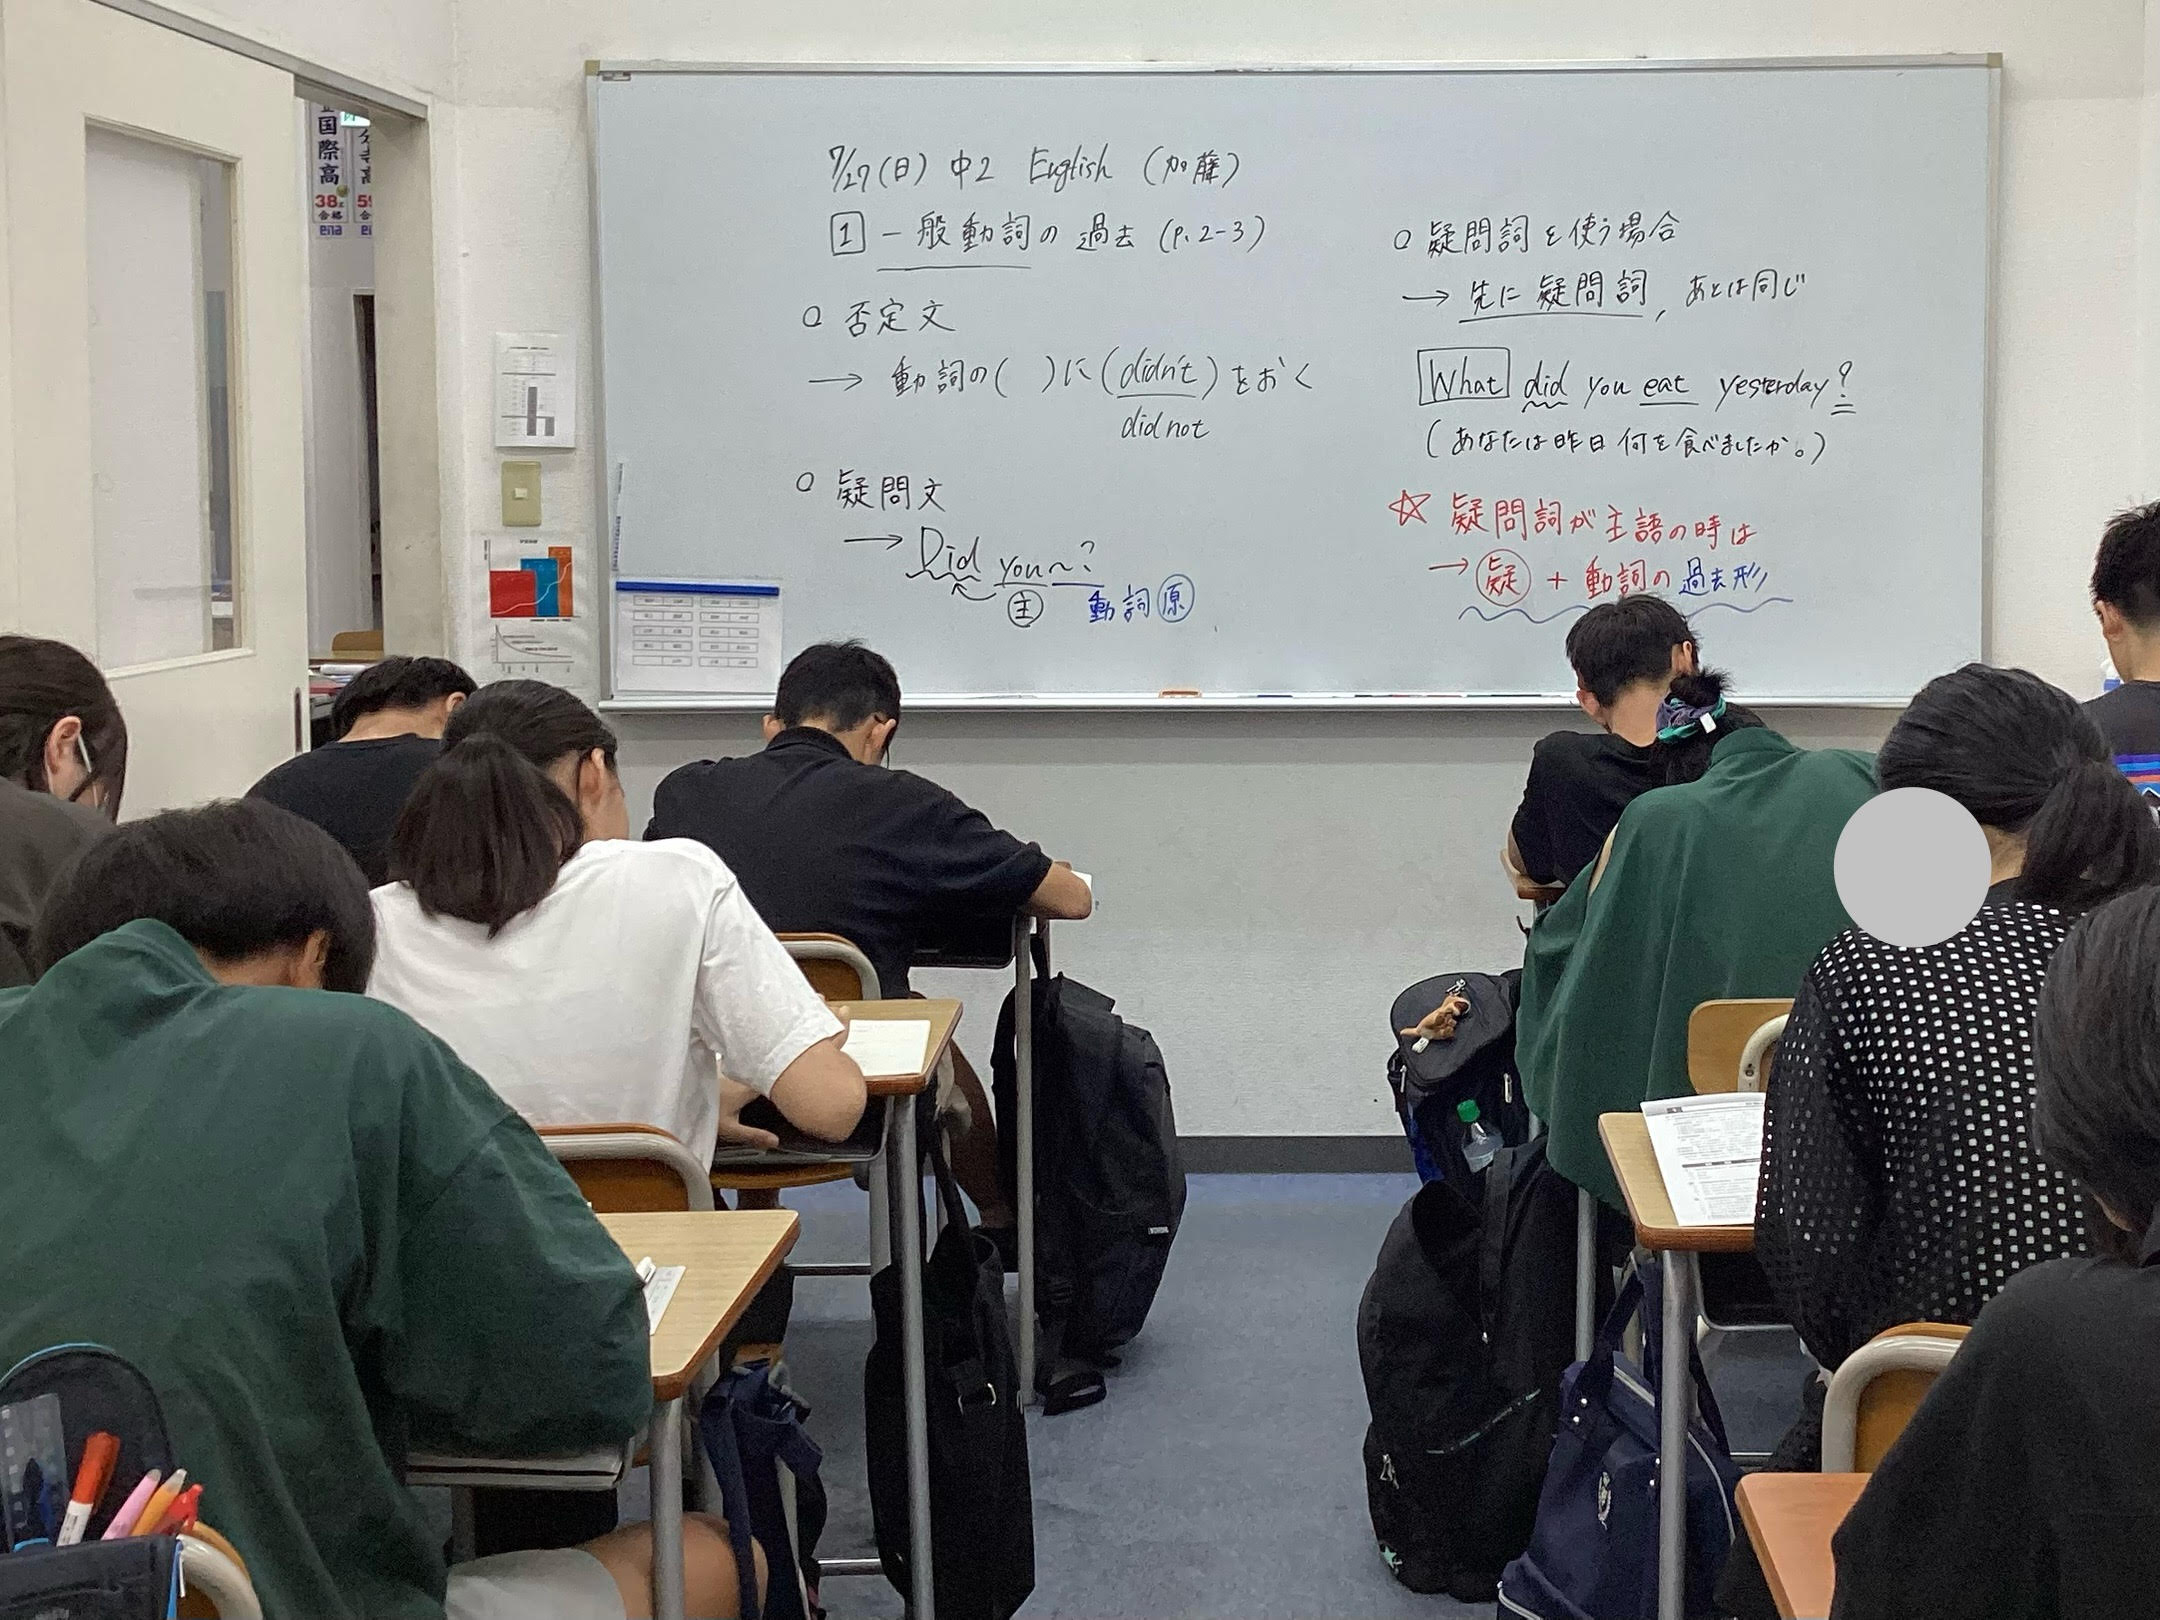 国際高
38名
合格
ena
合格
ena
7/27(日) 中2 English (加藤)
1 一般動詞の過去 (P.2-3)
○ 否定文
→ 動詞の( )に(didn't)をおく
did not
○ 疑問文
→ Did you～?
主 動詞原
○ 疑問詞を使う場合
→ 先に疑問詞, あとは同じ
What did you eat yesterday?
(あなたは昨日何を食べましたか。)
☆ 疑問詞が主語の時は
→ 疑 + 動詞の過去形